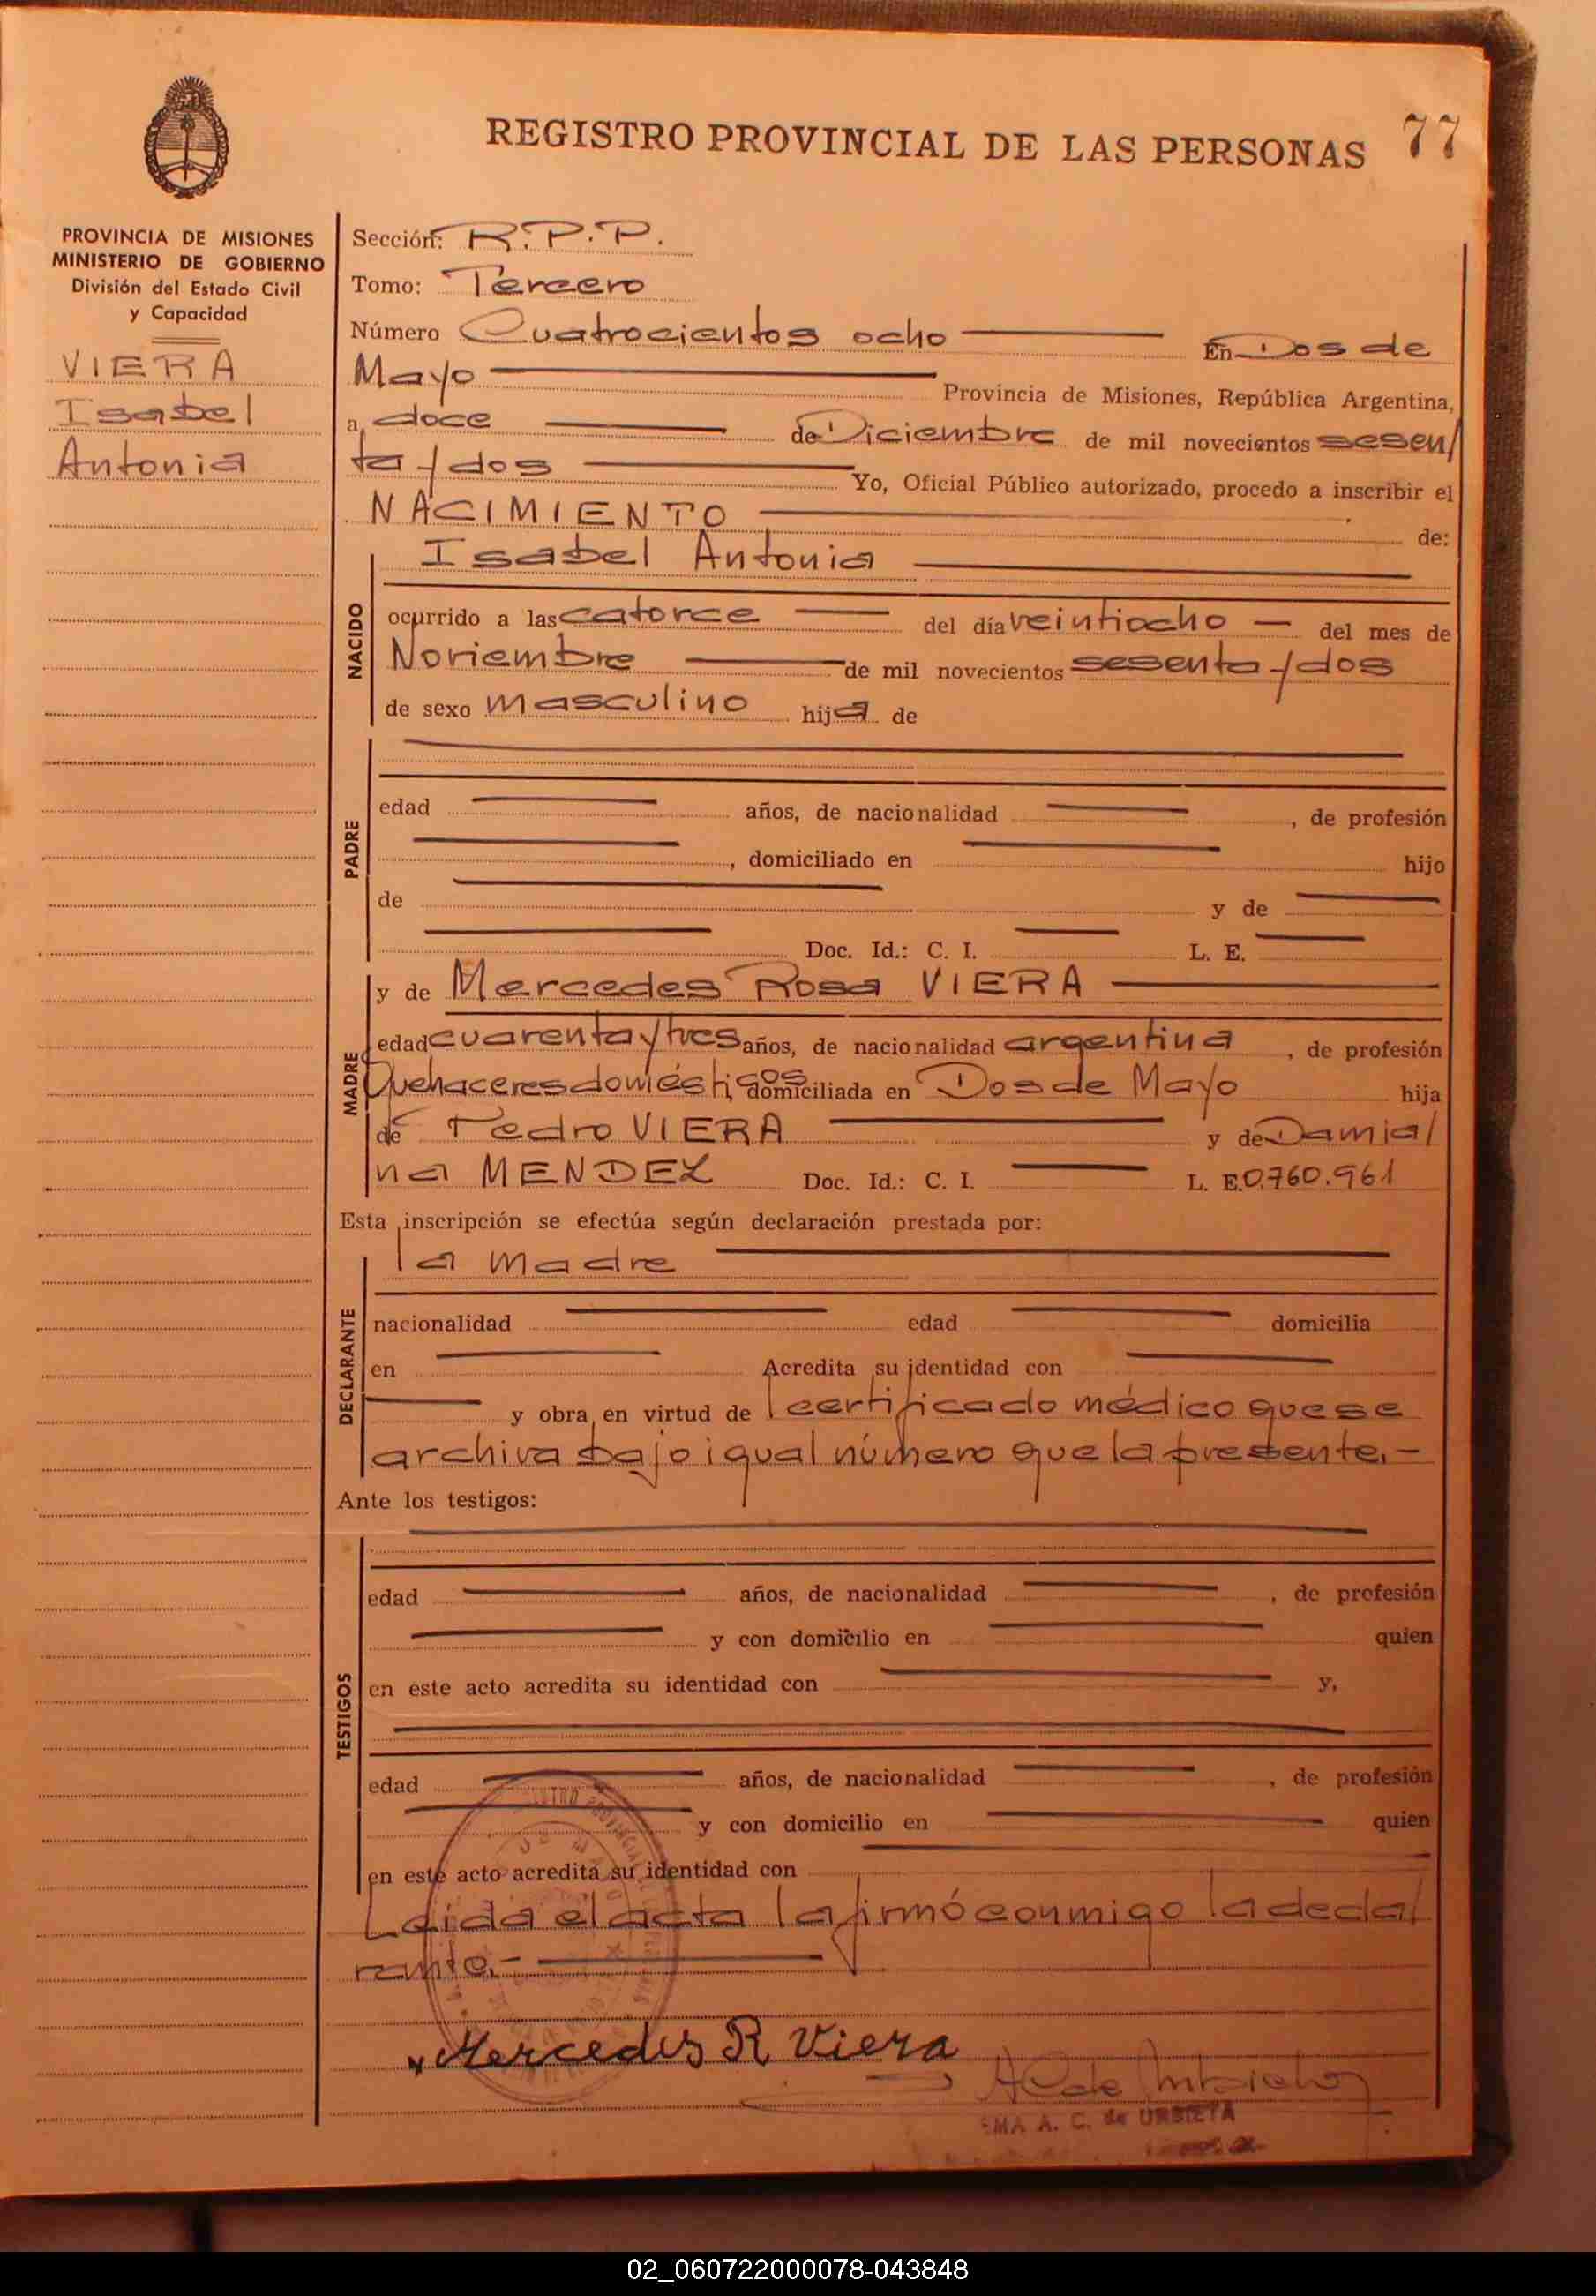 REGISTRO PROVINCIAL DE LAS PERSONAS 77
PROVINCIA DE MISIONES
MINISTERIO DE GOBIERNO
División del Estado Civil
y Capacidad
VIERA
Isabel
Antonia
Sección: R.P.P.
Tomo: Tercero
Número Cuatrocientos ocho En Dos de
Mayo Provincia de Misiones, República Argentina,
a doce de Diciembre de mil novecientos sesen/
ta y dos Yo, Oficial Público autorizado, procedo a inscribir el
NACIMIENTO de:
NACIDO
Isabel Antonia
ocurrido a las catorce del día veintiocho del mes de
Noviembre de mil novecientos sesenta y dos
de sexo masculino hija de
PADRE
edad años, de nacionalidad , de profesión
, domiciliado en hijo
de y de
Doc. Id.: C. I. L. E.
MADRE
y de Mercedes Rosa VIERA
edad cuarenta y tres años, de nacionalidad argentina , de profesión
Quehaceres domésticos, domiciliada en Dos de Mayo hija
de Pedro VIERA y de Damia/
na MENDEZ Doc. Id.: C. I. L. E. 0.760.961
Esta inscripción se efectúa según declaración prestada por:
DECLARANTE
la madre
nacionalidad edad domicilia
en Acredita su identidad con
y obra en virtud de l certificado médico que se
archiva bajo igual número que la presente.-
Ante los testigos:
TESTIGOS
edad años, de nacionalidad , de profesión
y con domicilio en quien
en este acto acredita su identidad con y,
edad años, de nacionalidad , de profesión
y con domicilio en quien
en este acto acredita su identidad con
Leida el acta la firmó conmigo la decla/
rante.-
Mercedes R Viera
A. C. de URBIETA
02_060722000078-043848